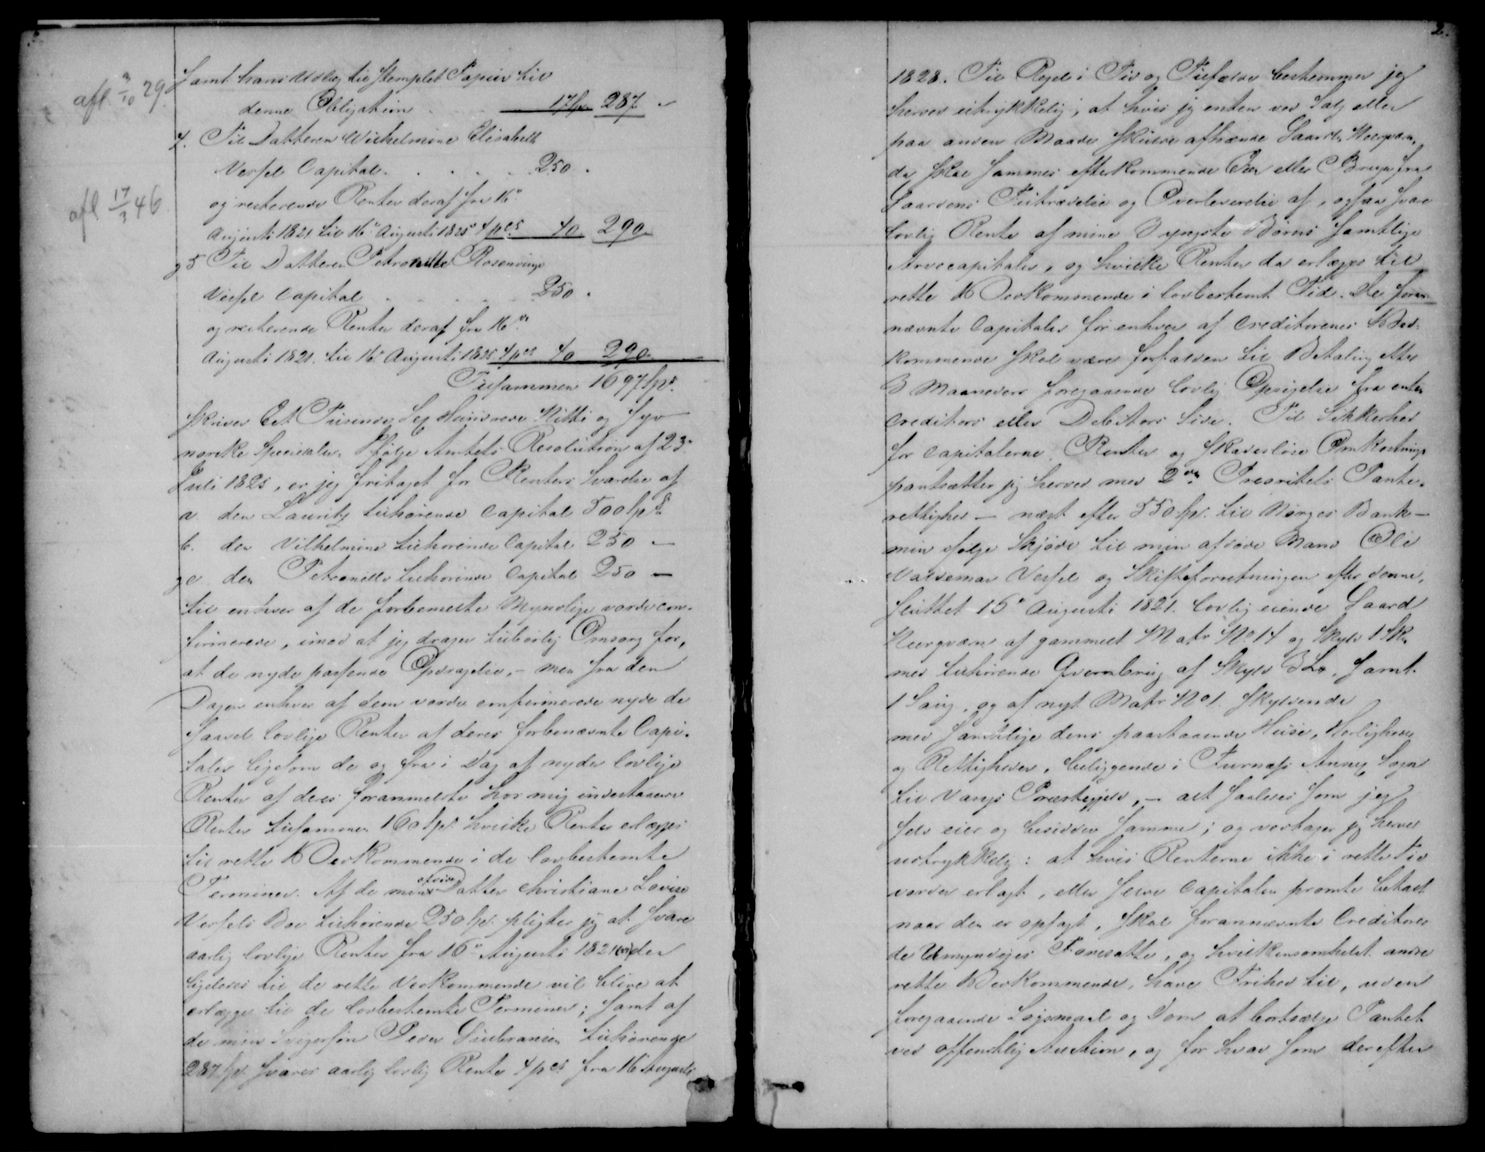 2.
afl. 3/10 29.
afl 17/3 46
Samt hans Udlæg til stemplet Papiir til
denne Obligation 17 sp 287
4. Til Datteren Wilhelmine Elisabeth
Vessel Capital 250.
og resterende Renter deraf fra 16de
Augusti 1821 til 16de Augusti 1825 4 pCt 40 290
og 5 Til Datteren Petronille Rosenvinge
Vessel Capital 250.
og resterende Renter deraf fra 16de
Augusti 1821 til 16de Augusti 1825 4 pCt 40 290
Tilsammen 1697 spd.
skriver Eet Tusinde Sex Hundrede Nitti og Syv
norske Specidaler. Ifølge Amtets Resolution af 23de
Juli 1825, er jeg fritaget for Renters Svarelse af
a. den Lauritz tilhørende Capital 500 spd
b. den Vilhelmine tilhørende Capital 250 —
og c. den Petronille tilhørende Capital 250 —
til enhver af de forbemeldte Myndlige vorde con-
firmerede, imod at jeg drager tilbørlig Omsorg for,
at de nyde passende Opdragelse, — men fra den
Dagen enhver af dem vorder confirmerede nyde de
saavel lovlige Renter af deres forbenævnte Capi-
taler ligesom de og fra i Dag af nyder lovlige
Renter af deres foranmeldte hos mig indestaaende
Renter tilsammen 160 spd. hvilke Renter erlægges
til rette Vedkommende i de lovbestemte
Terminer. Af de min afdøde Datter Christiane Lovise
Vessels Boe tilhørende 250 spd. pligter jeg at svare
aarlig lovlige Renter fra 16de Augusti 1821 der
ligeledes til de rette Vedkommende vil blive at
erlægge til de lovbestemte Terminer; samt af
de min Svigersøn Peder Gulbransen tilhørende
287 spd. svares aarlig lovlig Rente 4 pCt fra 16 Augusti
1828. Til Regel i Tid og Tilfælde bestemmes jeg
herved udtrykkelig, at hvis jeg enten ved Salg eller
paa anden Maade skulde afhænde Gaarden
da skal sammes efterkommende Eier eller Bruger fra
Gaardens Tiltrædelse og Overleverelse af, ogsaa svare
lovlig Rente af mine 3 yngste Børns samtlige
Arvecapitaler, og hvilke Renter da erlægges til
rette Vedkommende i lovbestemt Tid. De foran-
nævnte Capitaler for enhver af Creditorenes Ved-
kommende skal være forfalden til Betaling efter
3 Maaneders foregaaende lovlig Opsigelse fra enten
Creditors eller Debitors Side. Til Sikkerhed
for Capitalerne, Renter og skadesløse Omkostninger
pantsætter jeg herved med 2den Prioritets Pante-
rettighed — næst efter 550 spd. til Norges Bank —
min ifølge Skjøde til min afdøde Mand Ole
Valdemar Vessel og Skifteforretningen efter denne,
sluttet 15de Augusti 1821. lovlig eiende Gaard
af gammelt Matr No 14 og Skyld 1 Sk.
med tilhørende Qværnbrug af Skyld samt
1 Saug, og af nyt Matr No 1 skyldsende
med samtlige dens paastaaende Huse, Herligheder
og Rettigheder, beliggende i Furnæs Annex Sogn
til Vangs Præstegjeld, — alt saaledes som jeg
selv eier og besidder samme; og vedtager jeg herved
udtrykkelig: at hvis Renterne ikke i rette Tid
vorder erlagt, eller selve Capitalen promte betalt
naar den er opsagt, skal forannævnte Creditorer
de Umyndiges Foresatte, og hvilkensomhelst andre
rette Vedkommende, have Frihed til, uden
foregaaende Søgsmaal og Dom at bortsælge Pantet
ved offentlig Auction, og for hvad som derefter